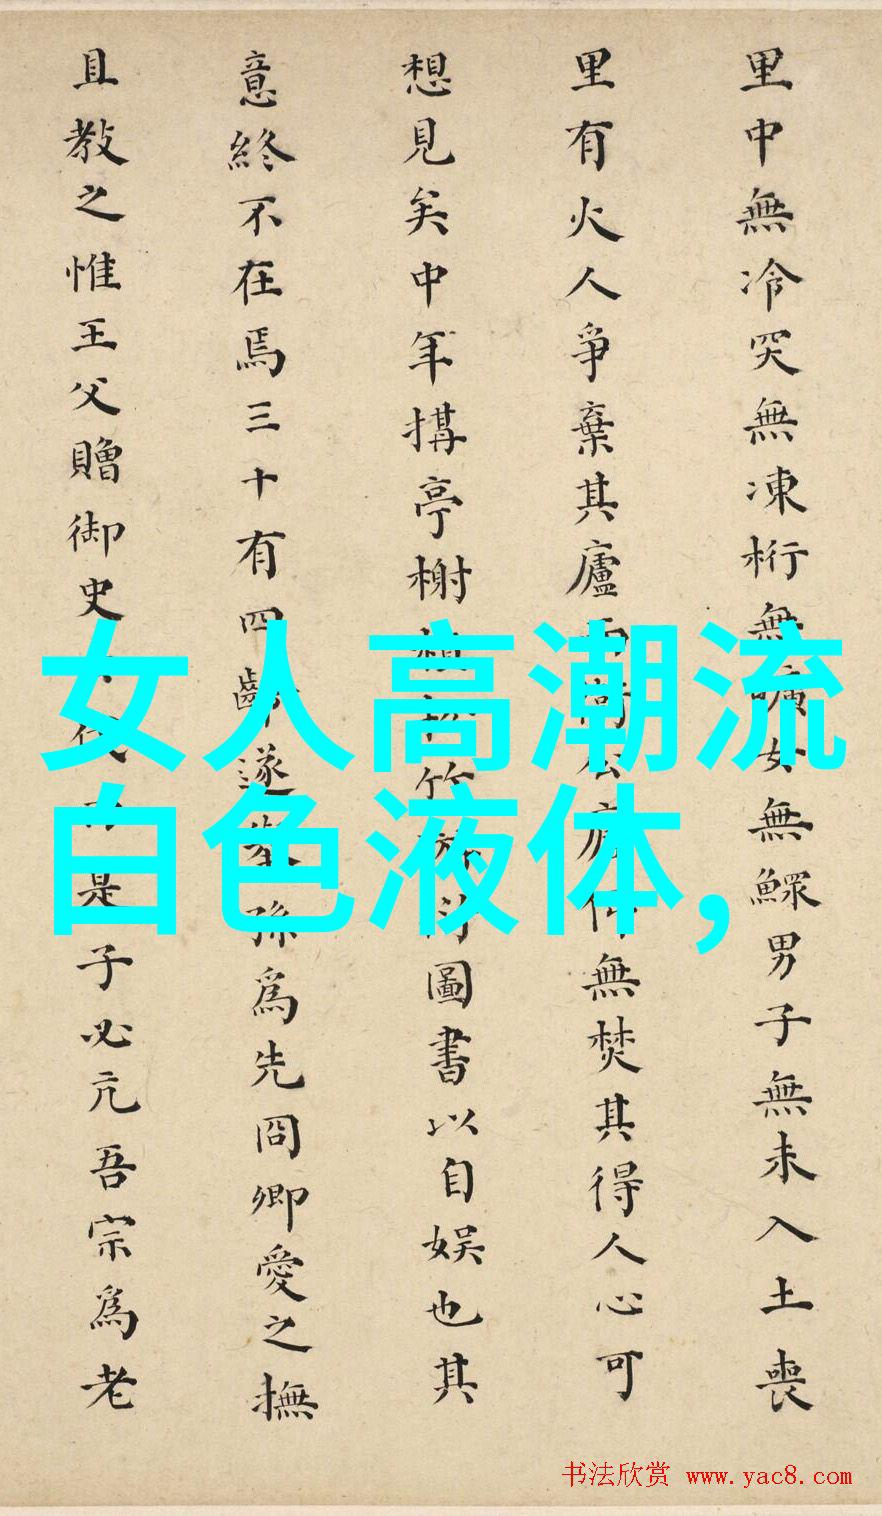 里中無冷突無凍桁無曠女無鰥男子無未入土喪
里有火人爭棄其廬而衛公廨俱無焚其得人心可
想見矣中年搆亭榭植松竹蒔圖書以自娛也其
意終不在焉三十有四齡遂歲孫爲先冏卿愛之撫
且教之惟王父贈御史是子必亢吾宗爲老
女人高潮流
白色液体,
书法欣赏 www.yac8.com